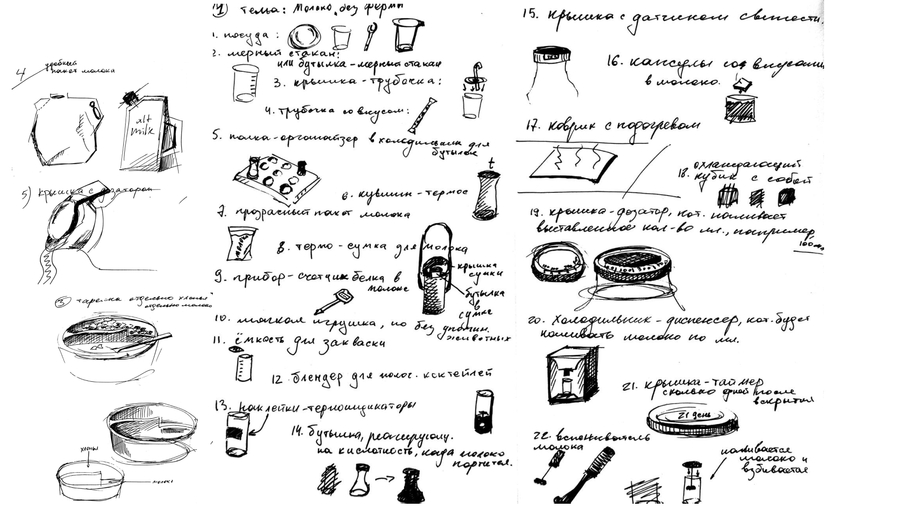 4
удобный
пакет молока
alt
milk
5) крышка с
тарелка отдельно хлопья
отдельно молоко
хлопья
молоко
1) тема: Молоко, без фермы
1. посуда:
2. мерный стакан:
или бутылка-мерный стакан
3. крышка-трубочка:
4. трубочка со вкусом:
5. полка-органайзер в холодильник для
бутылок
6. кувшин-термос
t
7. прозрачный пакет молока
8. термо-сумка для молока
крышка
сумки
бутылка
в
сумке
9. прибор-счётчик белка в
молоке
10. мягкая игрушка, но без
животных
11. ёмкость для закваски
12. блендер для молоч. коктейлей
13. наклейки-термоиндикаторы
14. бутылка, реагирующ.
на кислотность, когда молоко
портится.
15. крышка с датчиком свежести.
16. капсулы со вкусами
в молоко.
17. коврик с подогревом
18. охлаждающий
кубик с собой
19. крышка-дозатор, кот. наливает
выставленное кол-во мл., например
100 мл.
20. Холодильник-диспенсер, кот. будет
наливать молоко по мл.
21. крышка-таймер
сколько дней после
вскрытия
21 день
22. вспениватель
молока
наливается
молоко и
взбивается